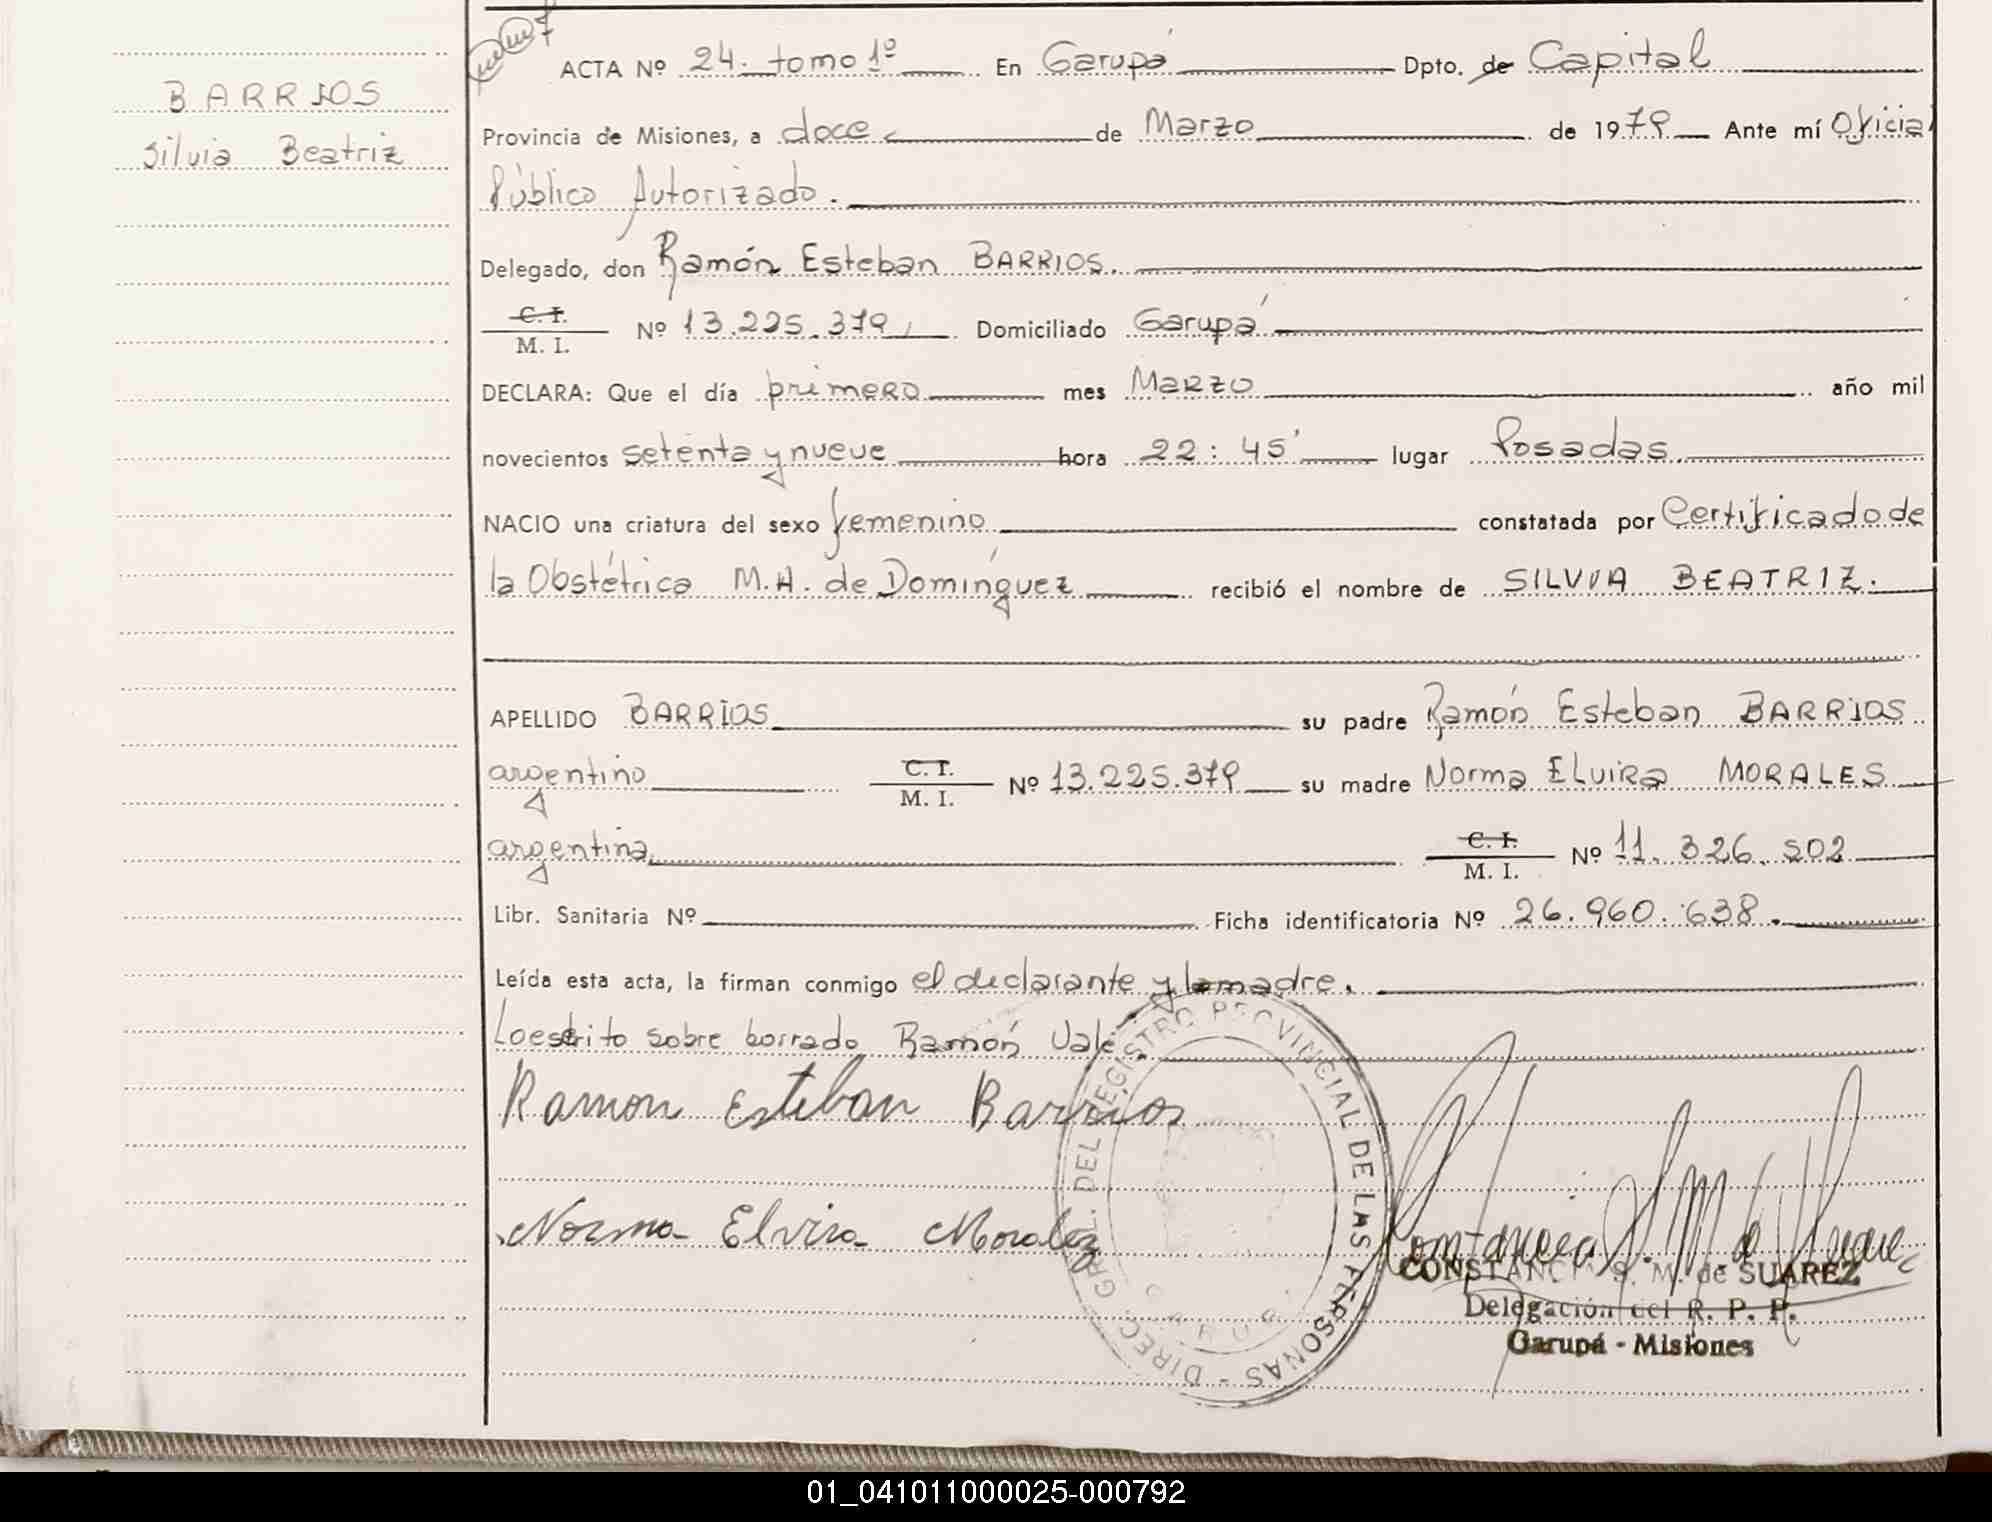 BARRIOS
Silvia Beatriz
ACTA Nº 24. tomo 1º En Garupá Dpto. de Capital
Provincia de Misiones, a doce de Marzo de 1979 Ante mí Oficial
Público Autorizado.
Delegado, don Ramón Esteban BARRIOS.
C. I.
M. I. Nº 13.225.379, Domiciliado Garupá
DECLARA: Que el día primero mes Marzo año mil
novecientos setenta y nueve hora 22:45' lugar Posadas.
NACIO una criatura del sexo femenino constatada por Certificado de
la Obstétrica M.H. de Domínguez recibió el nombre de SILVIA BEATRIZ.
APELLIDO BARRIOS su padre Ramón Esteban BARRIOS
argentino C. I. M. I. Nº 13.225.379 su madre Norma ELvira MORALES
argentina C. I. M. I. Nº 11.326.502
Libr. Sanitaria Nº Ficha identificatoria Nº 26.960.638.
Leída esta acta, la firman conmigo el declarante y la madre.
Lo escrito sobre borrado Ramón Vale.
Ramon Esteban Barrios
Norma Elvira Morales
DIREC. GRL. DEL REGISTRO PROVINCIAL DE LAS PERSONAS -
GARUPA
CONSTANCIA S. M. de SUAREZ
Delegación del R. P. P.
Garupá - Misiones
01_041011000025-000792